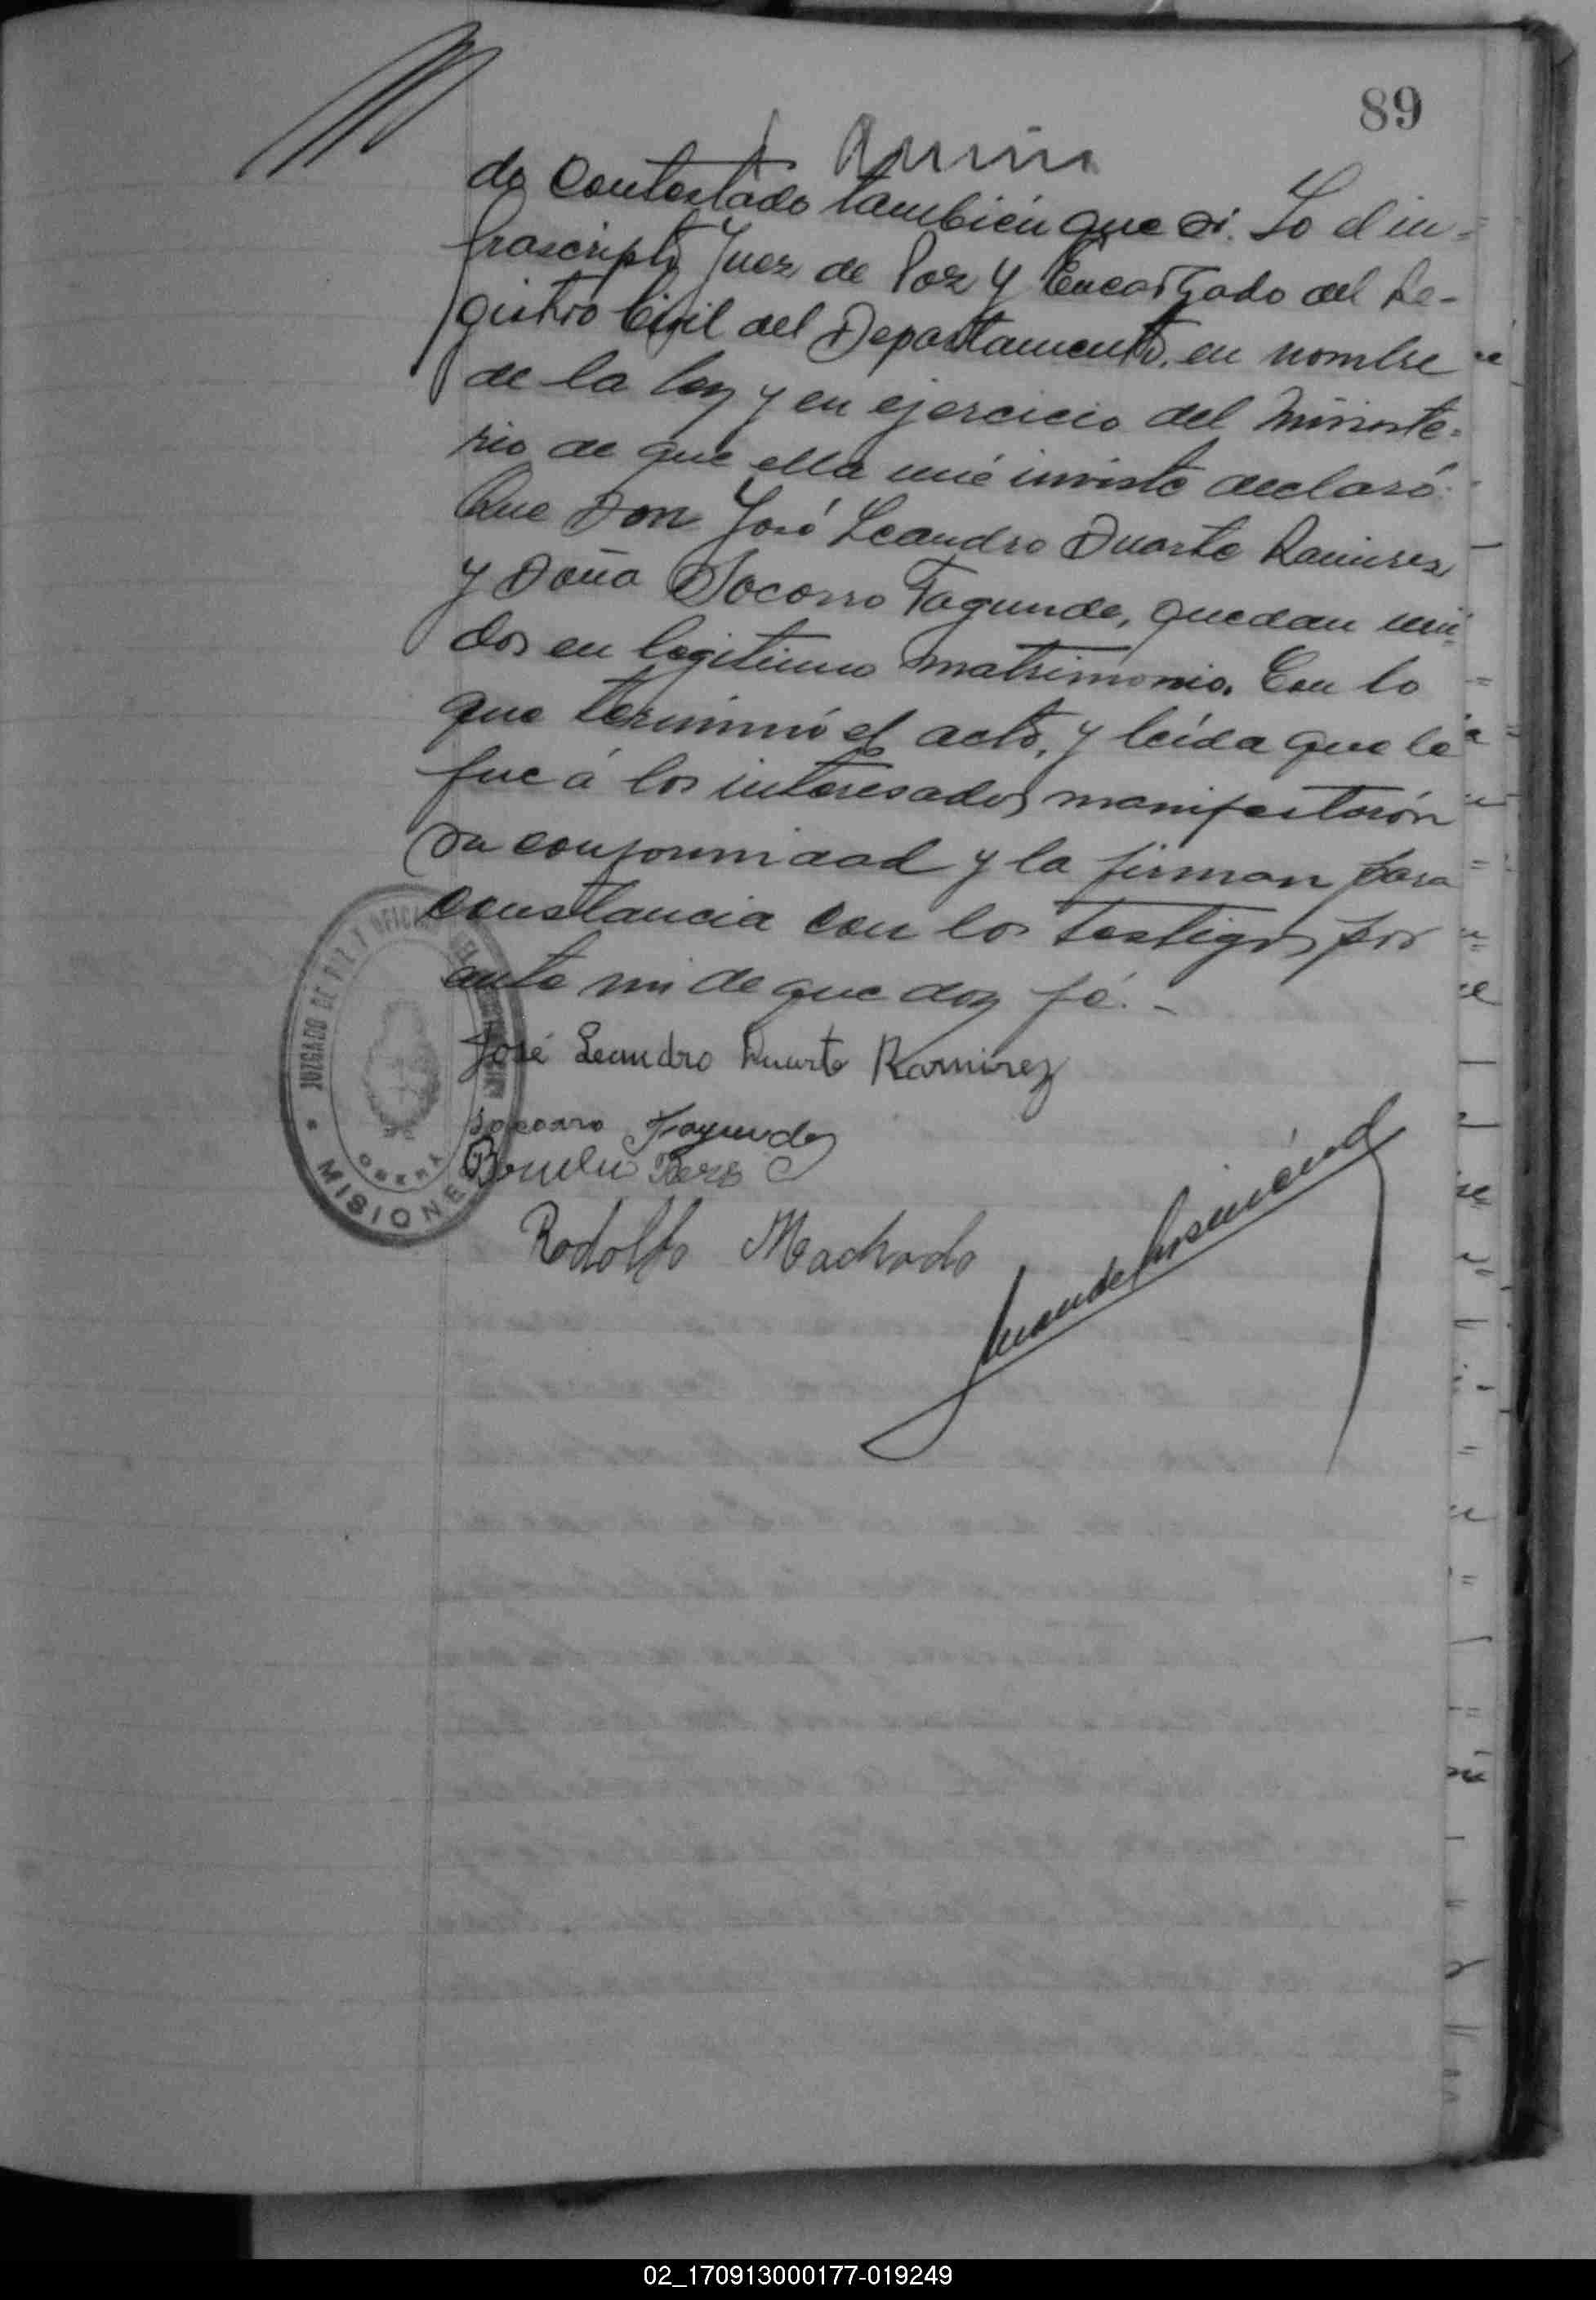 89
do contestado también que si. Yo el in-
frascripto Juez de Paz y Encargado del Re-
gistro Civil del Departamento, en nombre
de la ley y en ejercicio del ministe-
rio de que ella me inviste declaró:
Que Don José Leandro Duarte Ramirez
y Doña Socorro Fagunde, quedan uni-
dos en legitimo matrimonio. Con lo
que terminó el acto, y leída que le
fue á los interesados manifestarón
su conformidad y la firman para
constancia con los testigos por
ante mi de que doy fé.-
JUZGADO DE PAZ Y OFICINA DEL
OBERA
MISIONES
José Leandro Duarte Ramirez
Socorro Fagundes
Rodolfo Machado
02_170913000177-019249